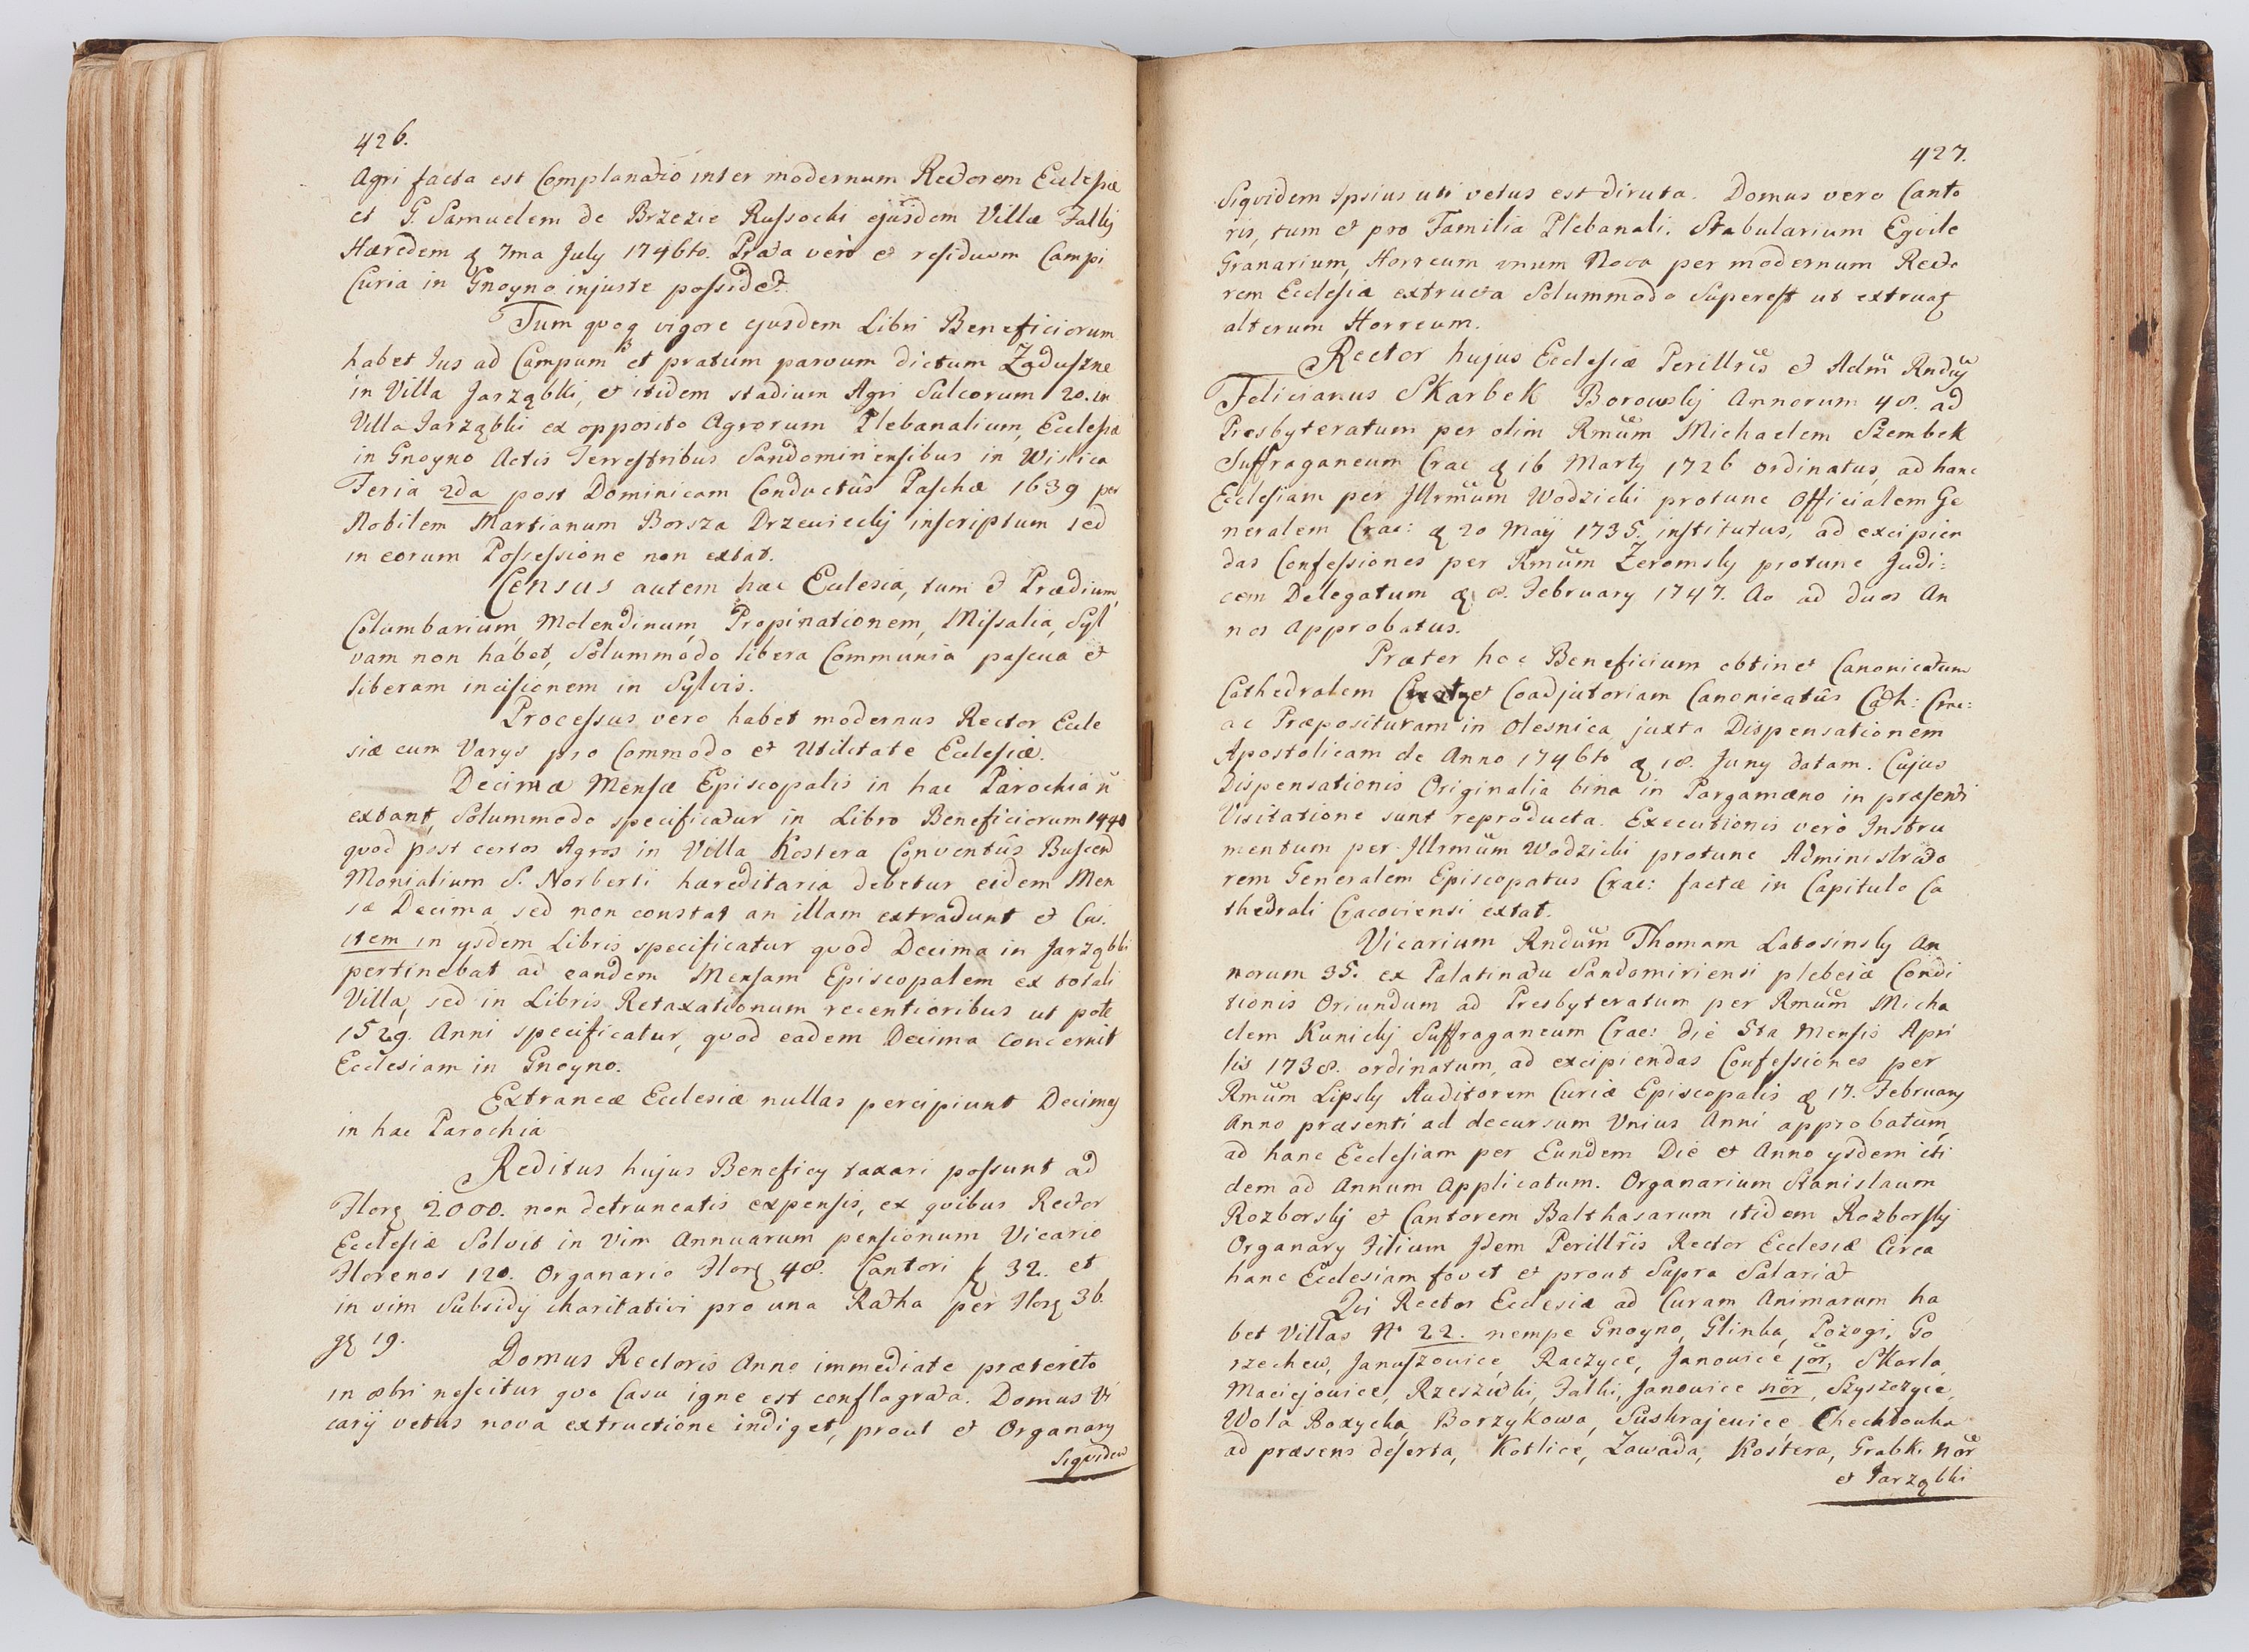 426.
Agri facta est Complanatio inter modernum Rectorem Ecclesiæ
et G. Samuelem de Brzezie Russocki ejusdem Villæ Falki
Hæredem 7ma July 1746to. Prata verò et residuum Campi
Curia in Gnoyno injuste possidet.
Tum quoq vigore ejusdem Libri Beneficiorum
habet Jus ad Campum et pratum parvum dictum Zaduszne
in Villa Jarząbki, et itidem stadium Agri Sulcorum 20. in
Villa Jarząbki ex opposito Agrorum Plebanalium, Ecclesiæ
in Gnoyno Actis Terrestribus Sandomiriensibus in Wislica
Feria 2da post Dominicam Conductûs Paschæ 1639 per
Nobilem Martianum Borsza Drzewiecky inscriptum sed
in eorum Possessione non extat.
Census autem hæc Ecclesia, tum et Prædium,
Columbarium, Molendinum, Propinationem, Missalia, Syl
vam non habet, Solummodo libera Communia pascua et
liberam incisionem in Sylvis.
Processus vero habet modernus Rector Eccle
siæ cum Varys pro Commodo et Utilitate Ecclesiæ.
Decimæ Mensæ Episcopalis in hac Parochia n
extant, Solummodo specificatur in Libro Beneficiorum 1440
quod post certos Agros in Villa Kostera Conventûs Buscen
Monialium S. Norberti hæreditaria debetur eidem Men
sæ Decima, sed non constat an illam extradunt et Cui.
item in ysdem Libris specificatur quod Decima in Jarząbki
pertinebat ad eandem Mensam Episcopalem ex totali
Villa, sed in Libris Retaxationum recentioribus ut pote
1529. Anni specificatur, quod eadem Decima concernit
Ecclesiam in Gnoyno.
Extraneæ Ecclesiæ nullas percipiunt Decimas
in hac Parochia
Reditus hujus Beneficy taxari possunt ad
Flor 2000. non detruncatis expensis, ex quibus Rector
Ecclesiæ Solvit in Vim Annuarum pensionum Vicario
Florenos 120. Organario Flor 48. Cantori f 32. et
in vim Subsidy charitativi pro una Ratha per Flor 36.
g 19.
Domus Rectoris Anno immediate præterito
in 8bri nescitur quo Casu igne est conflagrata. Domus Vi
carij vetus nova extructione indiget, prout et Organary
Siquidem
427.
Siquidem Ipsius uti vetus est diruta. Domus vero Canto
ris, tum et pro Familia Plebanali. Stabularium Eqvile
Granarium, Horreum unum Nova per modernum Recto
rem Ecclesiæ extructa Solummodo Superest ut extruat
alterum Horreum.
Rector hujus Ecclesiæ Perillris et Adm Rndus
Felicianus Skarbek Borowsky Annorum 48. ad
Presbyteratum per olim Rmum Michaelem Szembek
Suffraganeum Crac 16 Marty 1726 ordinatus, ad hanc
Ecclesiam per Illrmum Wodzicki protunc Officialem Ge
neralem Crac: 20 Maij 1735. institutus, ad excipien
das Confessiones per Rmum Zeromsky protunc Judi:
cem Delegatum 8. February 1747. Ao ad duos An
nos approbatus.
Præter hoc Beneficium obtinet Canonicatum
Cathedralem et Coadjutoriam Canonicatûs Cath: Crac:
ac Præposituram in Olesnica juxta Dispensationem
Apostolicam de Anno 1746to 18. Juny datam. Cujus
Dispensationis Originalia bina in Pargamæno in præsenti
Visitatione sunt reproducta. Executionis verò Instru
mentum per Illrmum Wodzicki protunc Administrato
rem Generalem Episcopatus Crac: factæ in Capitulo Ca
thedrali Cracoviensi extat.
Vicarium Rndum Thomam Latosinsky An
norum 35. ex Palatinatu Sandomiriensi plebeiæ Condi
tionis Oriundum ad Presbyteratum per Rmum Micha
elem Kunicky Suffraganeum Crac: die 5ta Mensis Apri
lis 1738. ordinatum, ad excipiendas Confessiones per
Rmum Lipsky Auditorem Curiæ Episcopalis 17. February
Anno præsenti ad decursum Unius Anni approbatum,
ad hanc Ecclesiam per Eundem Die et Anno ysdem iti
dem ad Annum Applicatum. Organarium Stanislaum
Rozborsky et Cantorem Balthasarum itidem Rozborsky
Organary Filium Idem Perillris Rector Ecclesiæ Circa
hanc Ecclesiam fovet et prout Supra Salariat
Qui Rector Ecclesiæ ad Curam Animarum ha
bet Villas No 22. nempe Gnoyno, Glinka, Pozogi, Go
rzechew, Januszowice, Raczyce, Janowice jor, Skarla,
Maciejowice, Rzeszudki, Falki, Janowice nor, Szyszczyce,
Wola Boxycka, Borzykowa, Suskrajewice, Chechtowka
ad præsens deserta, Kotlice, Zawada, Kostera, Grabki nor
et Jarząbki